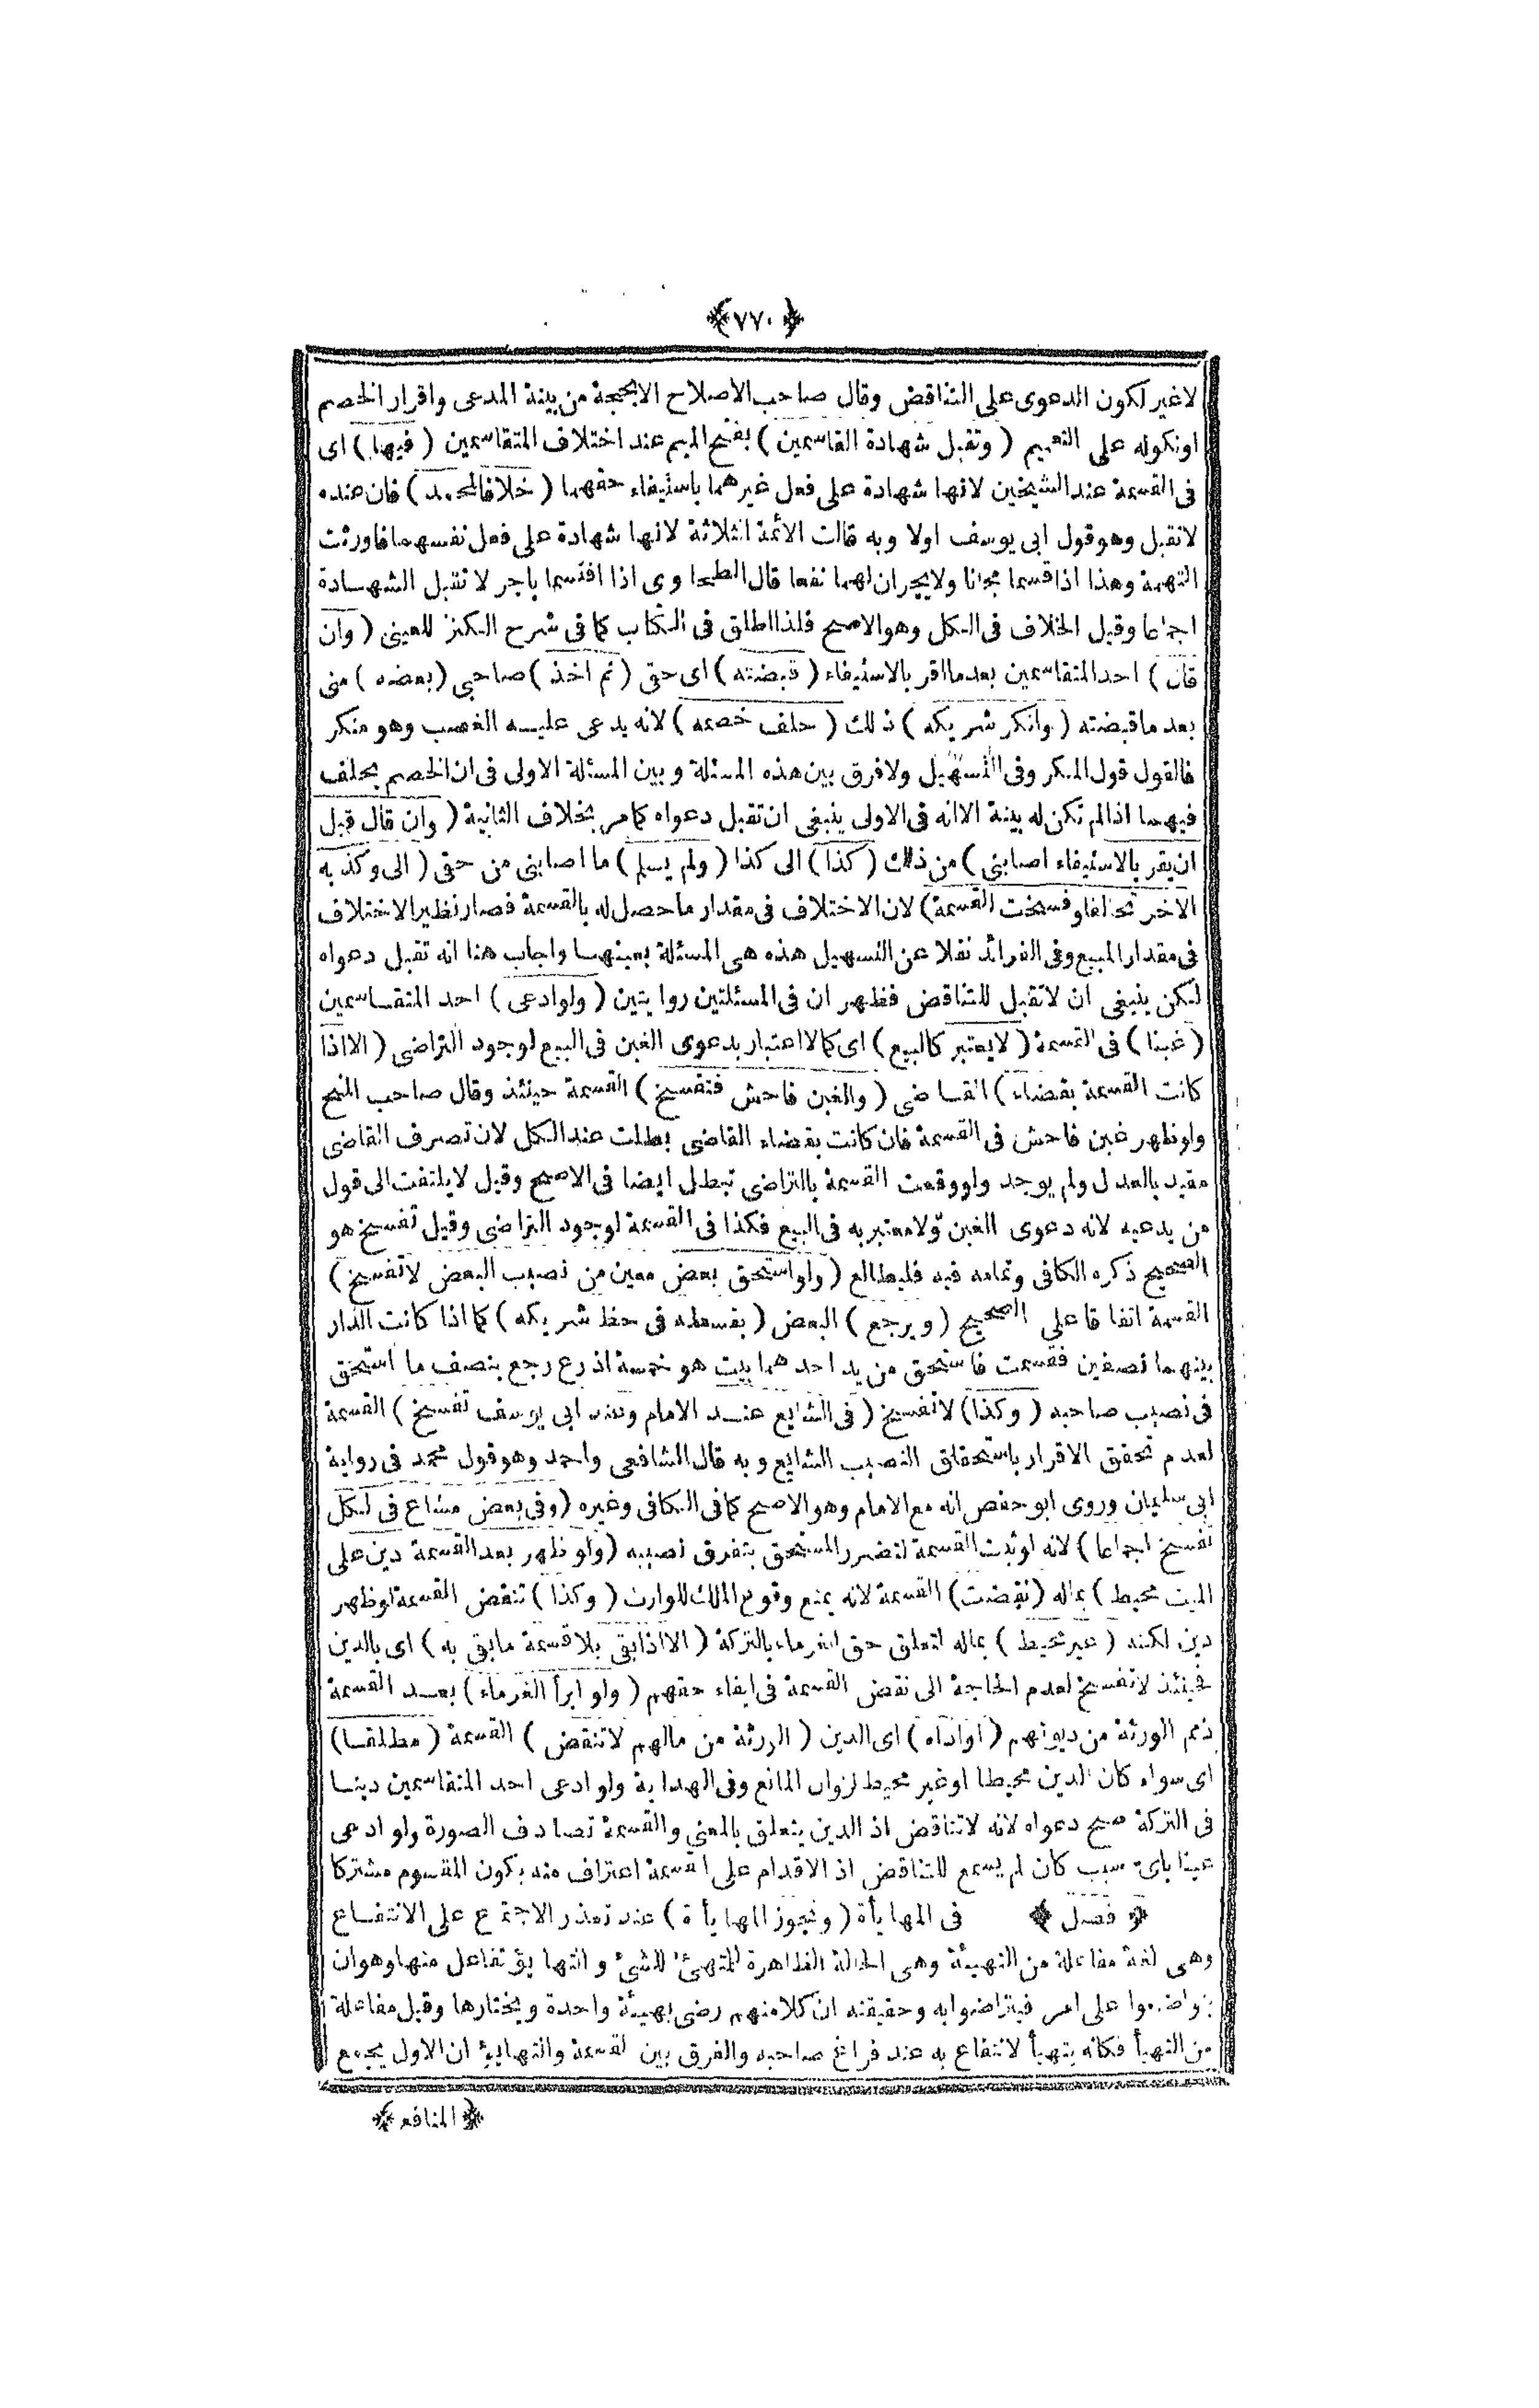 ﴿ ٧٧٠ ﴾
لا غير لكون الدعوى على التناقض وقال صاحب الاصلاح الابحجة من بينة المدعى واقرار الخصم
اونكوله على التعميم ( وتقبل شهادة القاسمين ) بفتح الميم عند اختلاف المتقاسمين ( فيها ) اى
فى القسمة عند الشيخين لانها شهادة على فعل غيرهما باستيفاء حقهما ( خلافا لمحمد ) فان عنده
لاتقبل وهو قول ابى يوسف اولا وبه قالت الأئمة الثلاثة لانها شهادة على فعل نفسهما فاورثت
التهمة وهذا اذا قسما مجانا ولايجران لهما نفعا قال الطحاوى اذا اقتسما باجر لا تقبل الشهادة
اجماعا وقيل الخلاف فى الكل وهو الاصح فلذا اطلق فى الكتاب كما فى شرح الكنز للعينى ( وان
قال ) احد المتقاسمين بعد ما اقر بالاستيفاء ( قبضته ) اى حقى ( ثم اخذ ) صاحبى ( بعضه ) منى
بعد ما قبضته ( وانكر شريكه ) ذلك ( حلف خصمه ) لانه يدعى عليه الغصب وهو منكر
فالقول قول المنكر وفى التسهيل ولافرق بين هذه المسئلة وبين المسئلة الاولى فى ان الخصم يحلف
فيهما اذا لم تكن له بينة الا انه فى الاولى ينبغى ان تقبل دعواه كما مر بخلاف الثانية ( وان قال قبل
ان يقر بالاستيفاء اصابنى ) من ذلك ( كذا ) الى كذا ( ولم يسلم ) ما اصابنى من حقى ( الى وكذبه
الاخر تحالفا وفسخت القسمة ) لان الاختلاف فى مقدار ما حصل له بالقسمة فصار نظير الاختلاف
فى مقدار المبيع وفى الفرائد نقلا عن التسهيل هذه هى المسئلة بعينها واجاب هنا انه تقبل دعواه
لكن ينبغى ان لاتقبل للتناقض فظهر ان فى المسئلتين روايتين ( ولوادعى ) احد المتقاسمين
( غبنا ) فى القسمة ( لايعتبر كالبيع ) اى كما لا اعتبار بدعوى الغبن فى البيع لوجود التراضى ( الا اذا
كانت القسمة بقضاء ) القاضى ( والغبن فاحش فتفسخ ) القسمة حينئذ وقال صاحب المنح
ولوظهر غبن فاحش فى القسمة فان كانت بقضاء القاضى بطلت عند الكل لان تصرف القاضى
مقيد بالعدل ولم يوجد ولو وقعت القسمة بالتراضى تبطل ايضا فى الاصح وقيل لايلتفت الى قول
من يدعيه لانه دعوى الغبن ولا معتبر به فى البيع فكذا فى القسمة لوجود التراضى وقيل تفسخ هو
الصحيح ذكره الكافى وتمامه فيه فليطالع ( ولو استحق بعض معين من نصيب البعض لاتفسخ )
القسمة اتفاقا على الصحيح ( ويرجع ) البعض ( بقسطه فى حظ شريكه ) كما اذا كانت الدار
بينهما نصفين فقسمت فاستحق من يد احدهما بيت هو خمسة اذرع رجع بنصف ما استحق
فى نصيب صاحبه ( وكذا ) لاتفسخ ( فى الشايع عند الامام وعند ابى يوسف تفسخ ) القسمة
لعدم تحقق الاقرار باستحقاق النصيب الشايع وبه قال الشافعى واحمد وهو قول محمد فى رواية
ابى سليمان وروى ابو حفص انه مع الامام وهو الاصح كما فى الكافى وغيره ( وفى بعض مشاع فى الكل
تفسخ اجماعا ) لانه لو ثبت القسمة لتضرر المستحق بتفرق نصيبه ( ولو ظهر بعد القسمة دين على
الميت محيط ) بماله ( نقضت ) القسمة لانه يمنع وقوع الملك للوارث ( وكذا ) تنقض القسمة لو ظهر
دين لكنه ( غير محيط ) بماله لتعلق حق الغرماء بالتركة ( الا اذا بقى بلا قسمة مابقى به ) اى بالدين
فحينئذ لاتفسخ لعدم الحاجة الى نقض القسمة فى ايفاء حقهم ( ولو ابرأ الغرماء ) بعد القسمة
ذمم الورثة من ديونهم ( اواداه ) اى الدين ( الورثة من مالهم لاتنقض ) القسمة ( مطلقا )
اى سواء كان الدين محيطا او غير محيط لزوال المانع وفى الهداية ولو ادعى احد المتقاسمين دينا
فى التركة صح دعواه لانه لاتناقض اذ الدين يتعلق بالمعنى والقسمة تصادف الصورة ولو ادعى
عينا باى سبب كان لم يسمع للتناقض اذ الاقدام على القسمة اعتراف منه بكون المقسوم مشتركا
﴿ فصل ﴾ فى المهايأة ( وتجوز المهايأة ) عند تعذر الاجتماع على الانتفاع
وهى لغة مفاعلة من التهيئة وهى الحالة الظاهرة للمتهئ للشئ والتهايؤ تفاعل منها وهو ان
يتواضعوا على امر فيتراضوا به وحقيقته ان كلا منهم رضى بهيئة واحدة ويختارها وقيل مفاعلة
من التهيأ فكانه يتهيأ لانتفاع به عند فراغ صاحبه والفرق بين القسمة والتهايئ ان الاول يجمع
﴿ المنافع ﴾